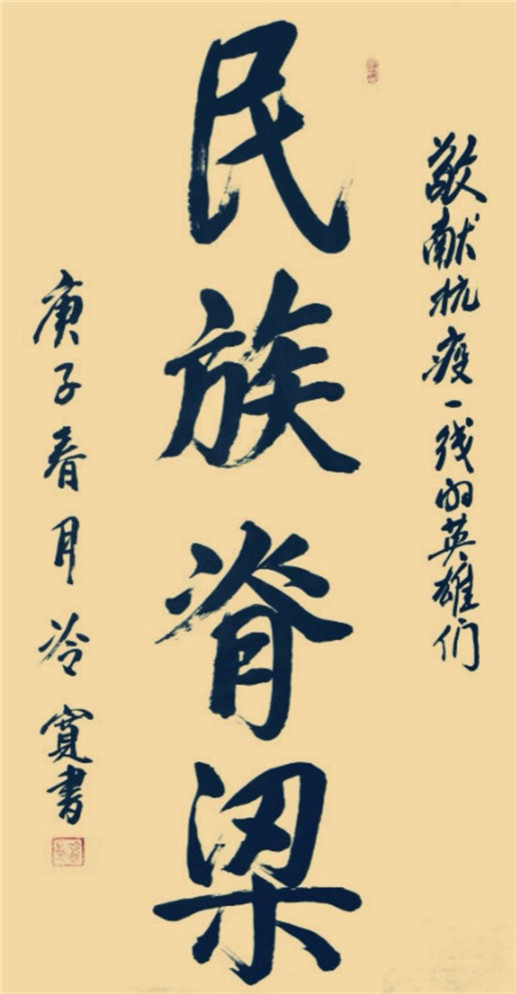 敬献抗疫一线的英雄们
民族脊梁
庚子春月冷寛書